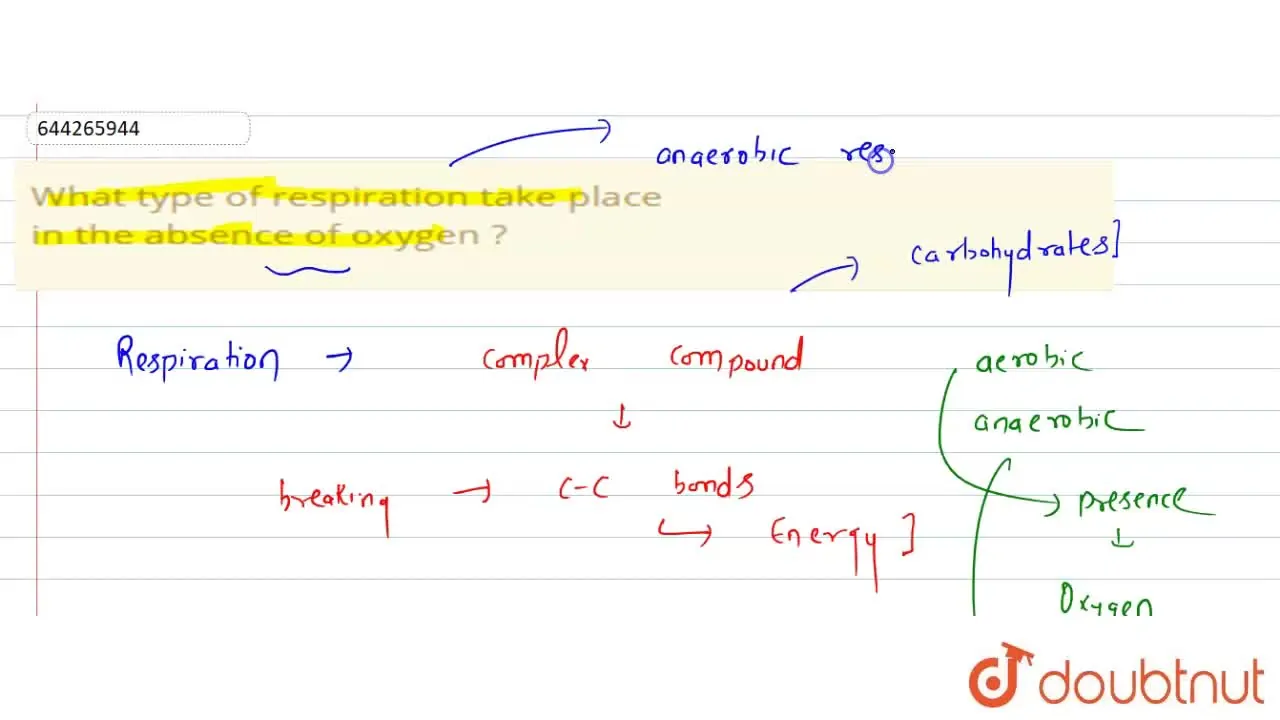 644265944
anaerobic res
What type of respiration take place
in the absence of oxygen ?
carbohydrates]
Respiration → complex compound
aerobic
↓
anaerobic
breaking → C-C bonds
presence
↳ Energy]
↓
Oxygen
doubtnut